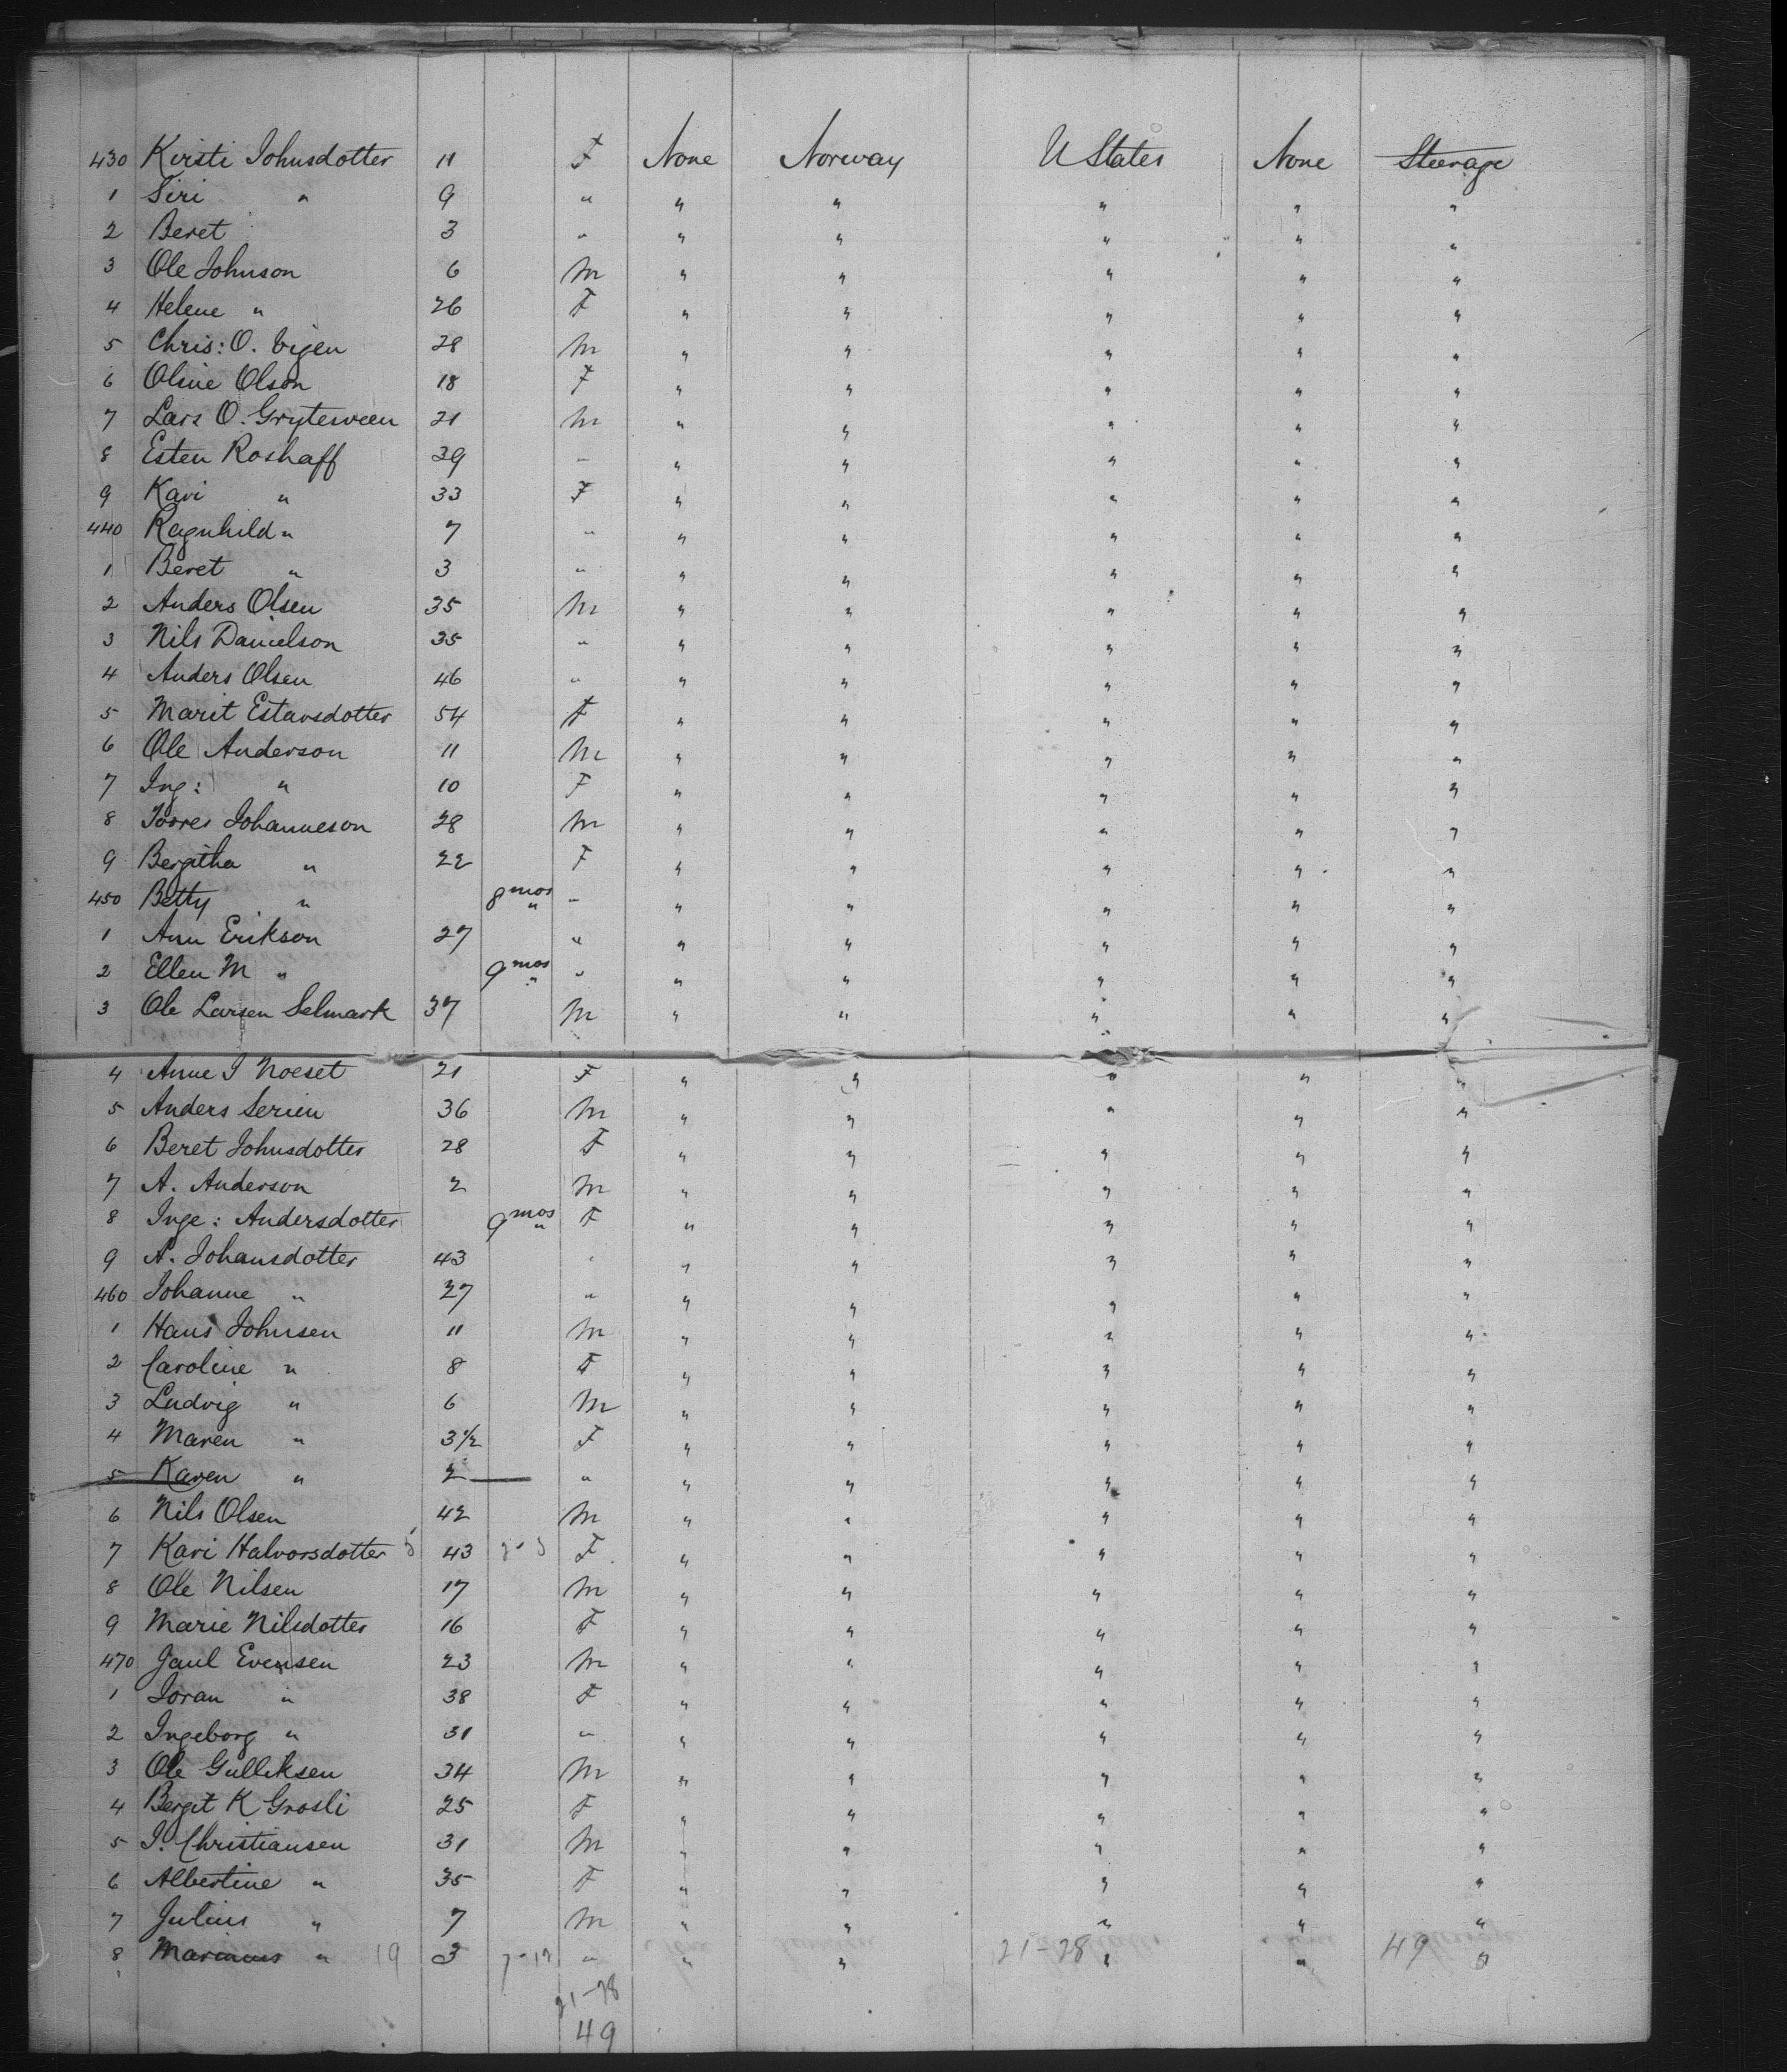 430 Kirsti Johnsdotter 11 F None Norway U States None Steerage
1 Siri " 9 " " " " " "
2 Beret 3 " " " " " "
3 Ole Johnson 6 M " " " " "
4 Helene " 26 F " " " " "
5 Chris: O. Vigen 28 M " " " " "
6 Oline Olson 18 F " " " " "
7 Lars O. Gryteween 21 M " " " " "
8 Esten Roshaff 39 " " " " " "
9 Kari " 33 F " " " " "
440 Ragnhild " 7 " " " " " "
1 Beret " 3 " " " " " "
2 Anders Olsen 35 M " " " " "
3 Nils Danielson 35 " " " " " "
4 Anders Olsen 46 " " " " " "
5 Marit Estensdotter 54 F " " " " "
6 Ole Anderson 11 M " " " " "
7 Ing: " 10 F " " " " "
8 Johanneson 28 M " " " " "
9 Bergitha " 22 F " " " " "
450 Betty " 8 mos " " " " " "
1 Ann Erikson 27 " " " " " "
2 Ellen M " 9 mos " " " " " "
3 Ole Larsen Selmark 37 M " " " " "
4 Anne J Noeset 21 F " " " " "
5 Anders Serien 36 M " " " " "
6 Beret Johnsdotter 28 F " " " " "
7 A. Anderson 2 M " " " " "
8 Inge: Andersdotter 9 mos F " " " " "
9 A. Johansdotter 43 " " " " " "
460 Johanne " 27 " " " " " "
1 Hans Johnsen 11 M " " " " "
2 Caroline " 8 F " " " " "
3 Ludvig " 6 M " " " " "
4 Maren " 3 1/2 F " " " " "
5 Karen " 2 " " " " " "
6 Nils Olsen 42 M " " " " "
7 Kari Halvorsdotter 43 F " " " " "
8 Ole Nilsen 17 M " " " " "
9 Marie Nilsdotter 16 F " " " " "
470 Gaul Evensen 23 M " " " " "
1 Joran " 38 F " " " " "
2 Ingeborg " 31 " " " " " "
3 Ole Gulliksen 34 M " " " " "
4 Bergit K Grosli 25 F " " " " "
5 J. Christiansen 31 M " " " " "
6 Albertine " 35 F " " " " "
7 Julius " 7 M " " " " "
8 Marinus " 19 3 " " " 21-28 " " 49 "
21-28
49